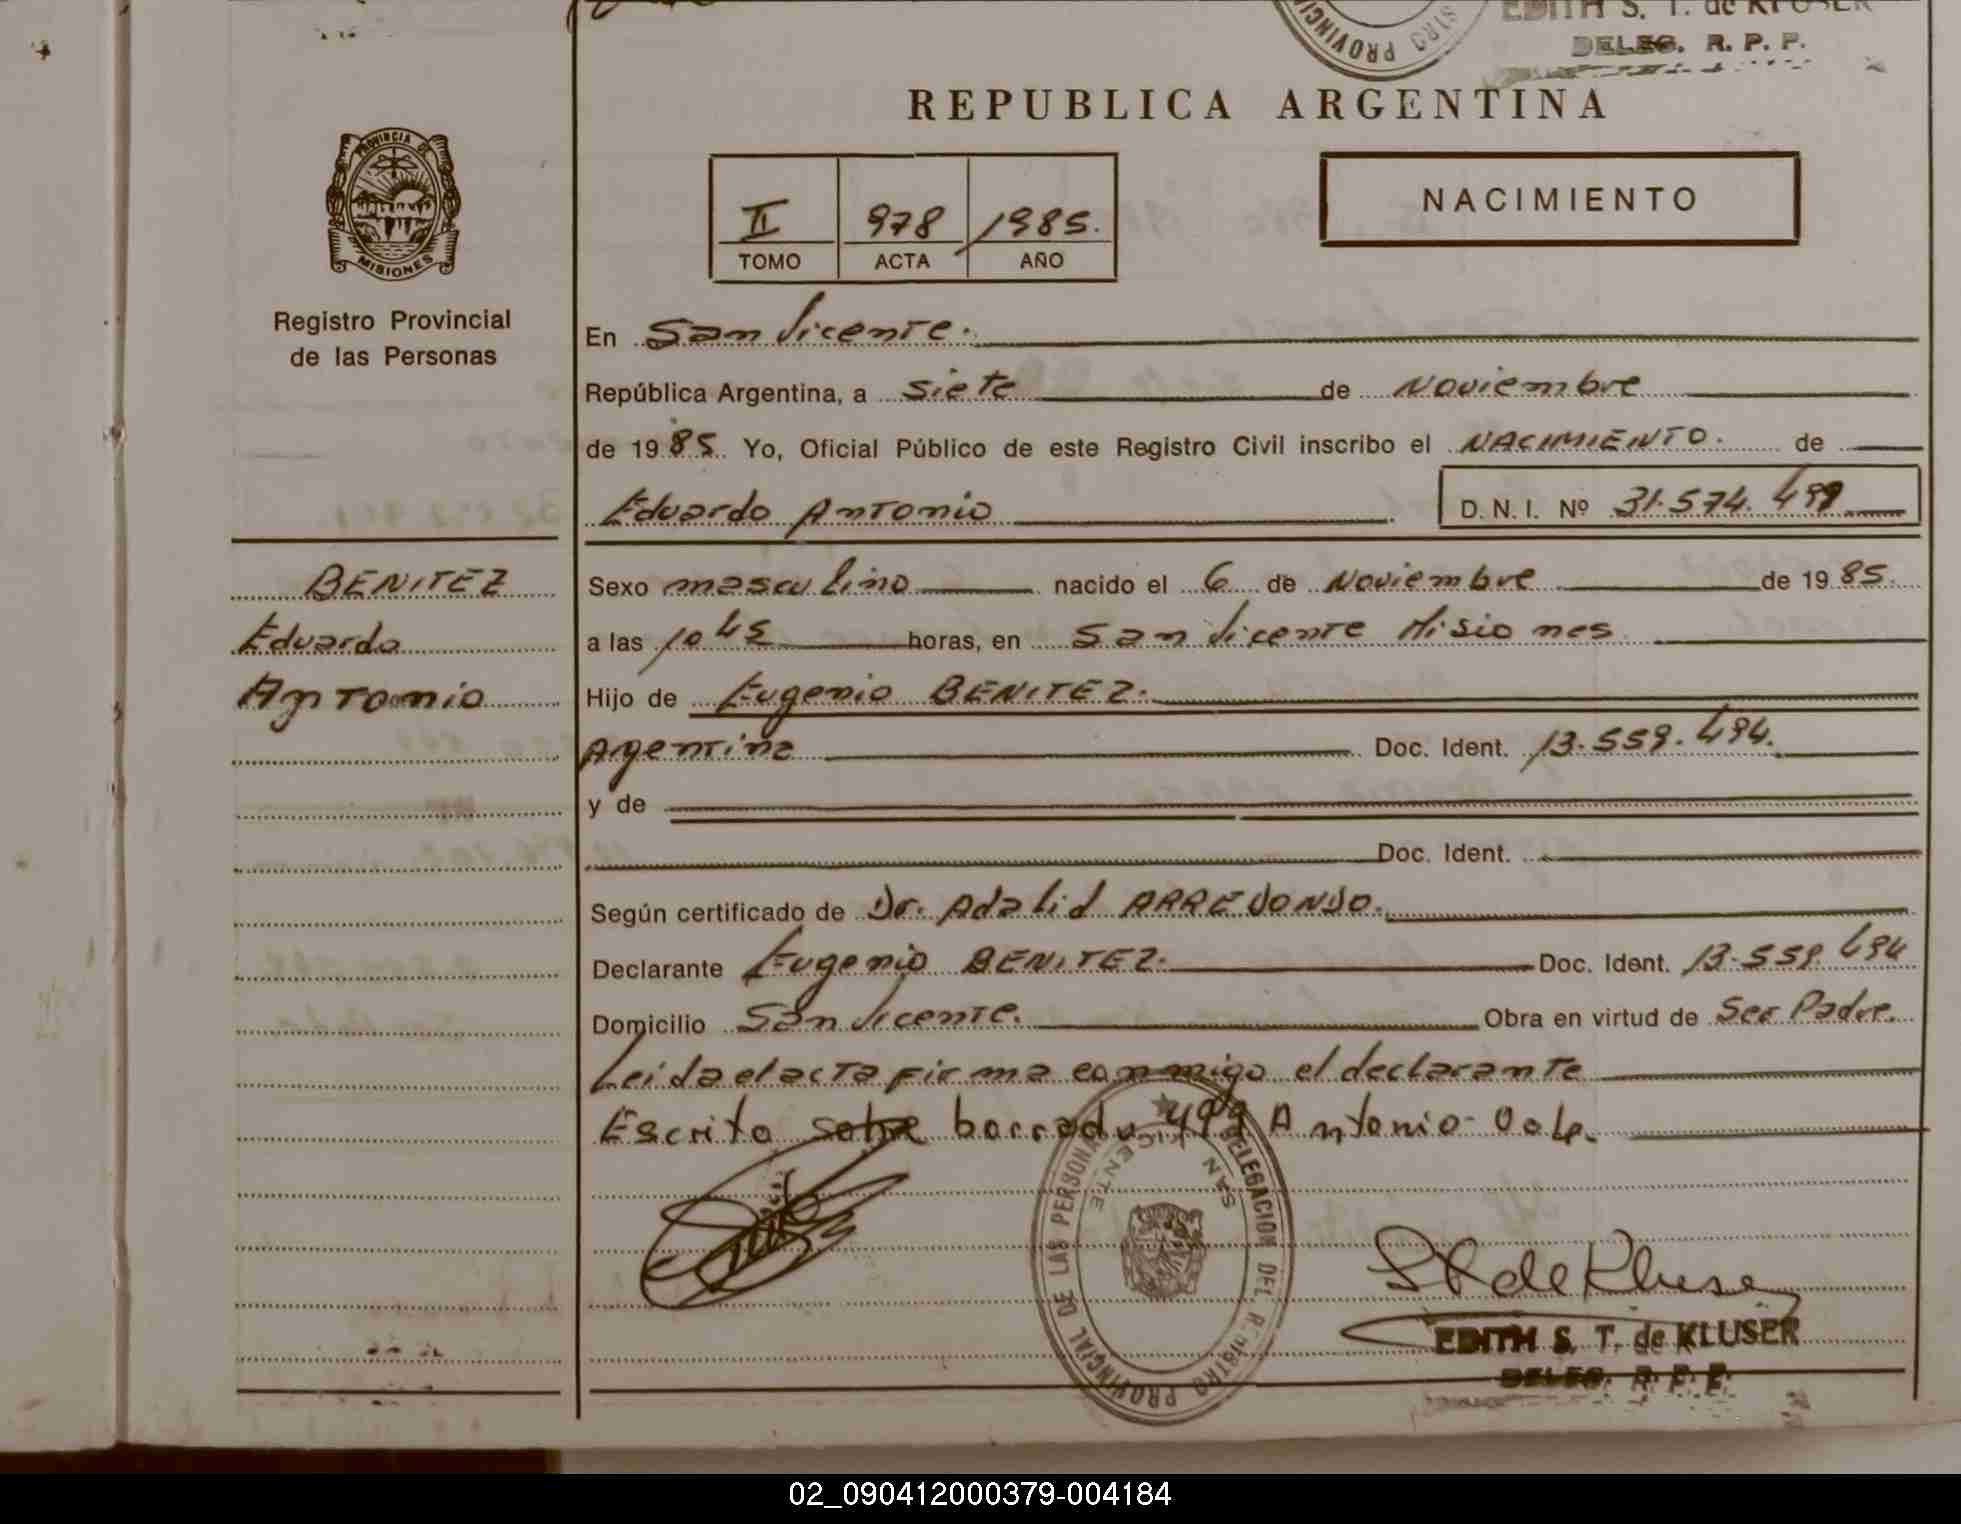 EDITH S. T. de KLUSER
DELEG. R. P. P.
REPUBLICA ARGENTINA
PROVINCIA DE
MISIONES
II 978 1985.
TOMO ACTA AÑO
NACIMIENTO
Registro Provincial
de las Personas
En San Vicente.
República Argentina, a siete de Noviembre
de 1985. Yo, Oficial Público de este Registro Civil inscribo el NACIMIENTO. de
Eduardo Antonio D. N. I. Nº 31.574.499
BENITEZ
Eduardo
Antonio
Sexo masculino nacido el 6 de Noviembre de 1985.
a las 10 45 horas, en San Vicente Misiones
Hijo de Eugenio BENITEZ.
Argentina Doc. Ident. 13.559.494.
y de
Doc. Ident.
Según certificado de Dr. Adalid ARREDONDO.
Declarante Eugenio BENITEZ. Doc. Ident. 13.559.494
Domicilio San Vicente. Obra en virtud de Ser Padre.
Leida el acta firma conmigo el declarante
Escrito sobre borrado 499 Antonio- Vale.
DELEGACION DEL REGISTRO PROVINCIAL DE LAS PERSONAS
SAN VICENTE
EDITH S. T. de KLUSER
DELEG. R. P. P.
02_090412000379-004184